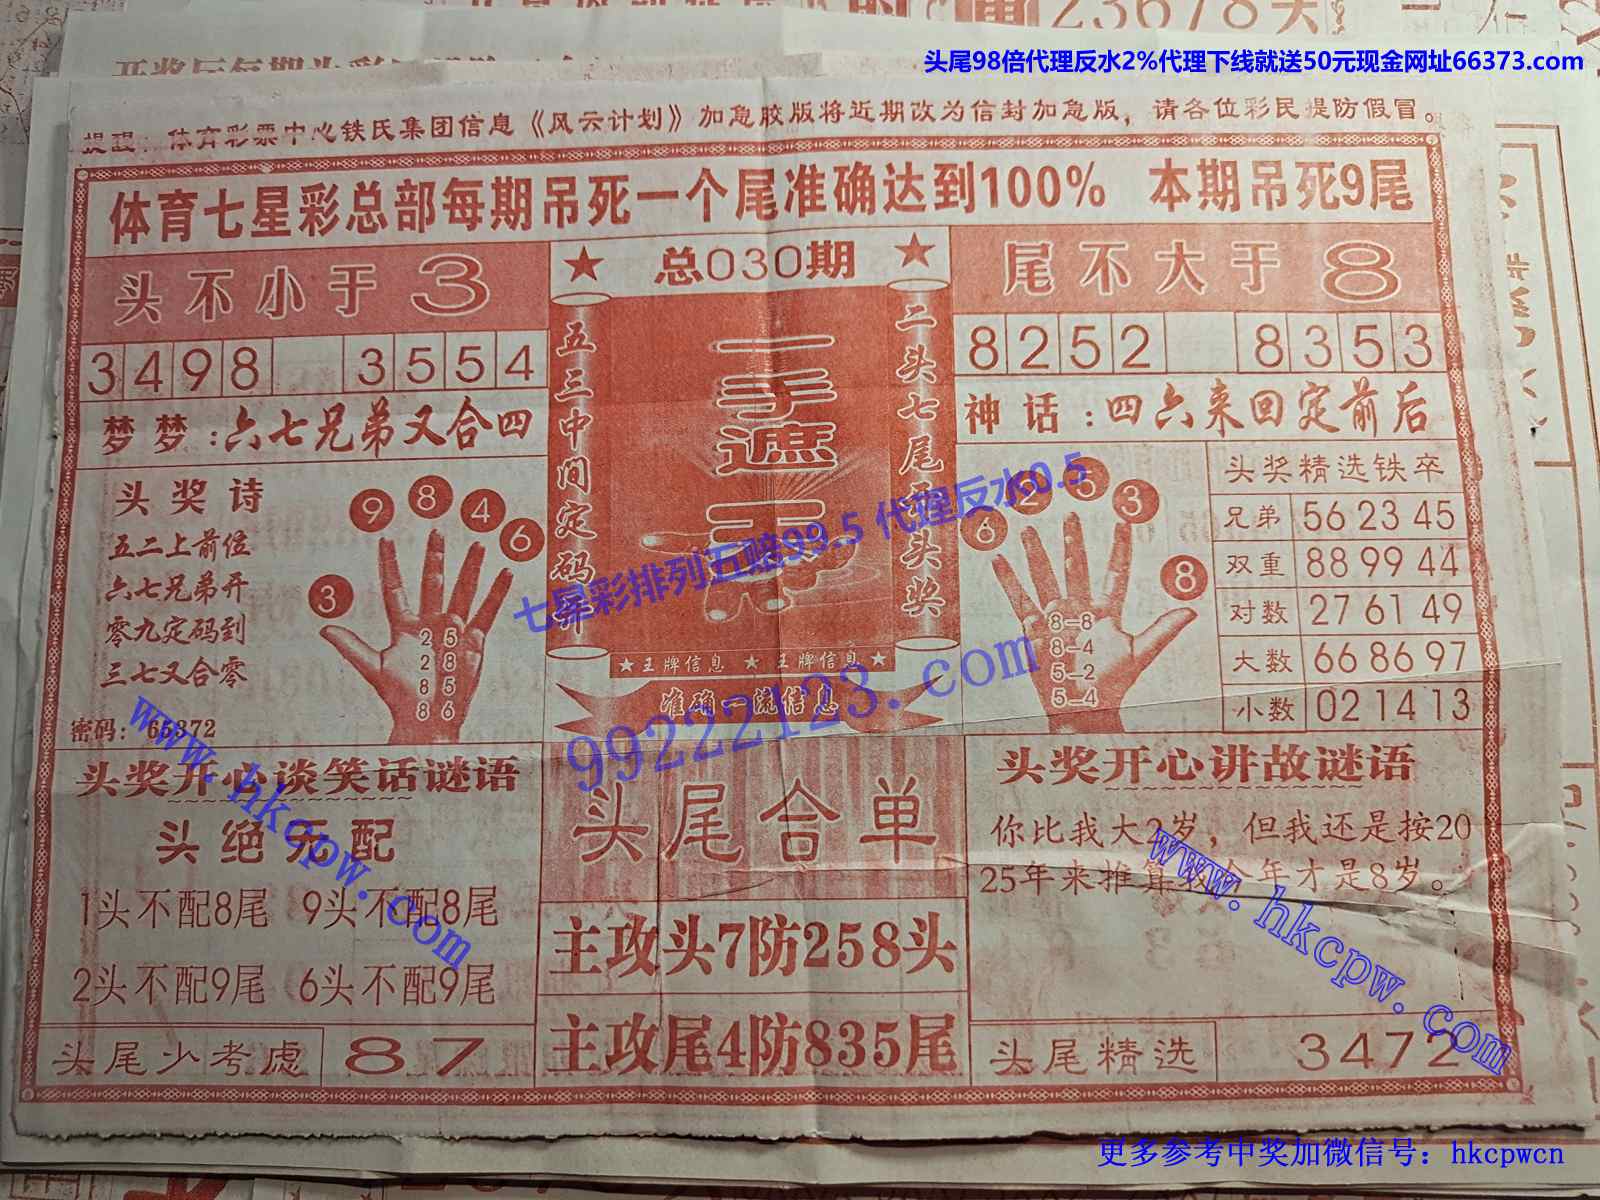 头尾98倍代理反水2%代理下线就送50元现金网址66373.com
提醒：体育彩票中心铁氏集团信息《风云计划》加急胶版将近期改为信封加急版，请各位彩民提防假冒。
体育七星彩总部每期吊死一个尾准确达到100% 本期吊死9尾
头不小于3
3498 3554
梦梦：六七兄弟又合四
头奖诗
五二上前位
六七兄弟开
零九定码到
三七又合零
密码：65372
3 9 8 4 6
2 5
2 8
8 5
8 6
★ 总030期 ★
五三中间定码
一手遮天
二头七尾 头奖
★王牌信息 ★ 王牌信息★
准确一流信息
尾不大于8
8252 8353
神话：四六来回定前后
6 2 5 3 8
8-8
8-4
5-2
5-4
头奖精选铁卒
兄弟 56 23 45
双重 88 99 44
对数 27 61 49
大数 66 86 97
小数 02 14 13
七星彩排列五赔99.5 代理反水0.5
99222123.com
www.hkcpw.com
www.hkcpw.com
头奖开心谈笑话谜语
头绝无配
1头不配8尾 9头不配8尾
2头不配9尾 6头不配9尾
头尾少考虑 87
头尾合单
主攻头7防258头
主攻尾4防835尾
头奖开心讲故谜语
你比我大2岁，但我还是按20
25年来推算 今年才是8岁。
头尾精选 3472
更多参考中奖加微信号：hkcpwcn